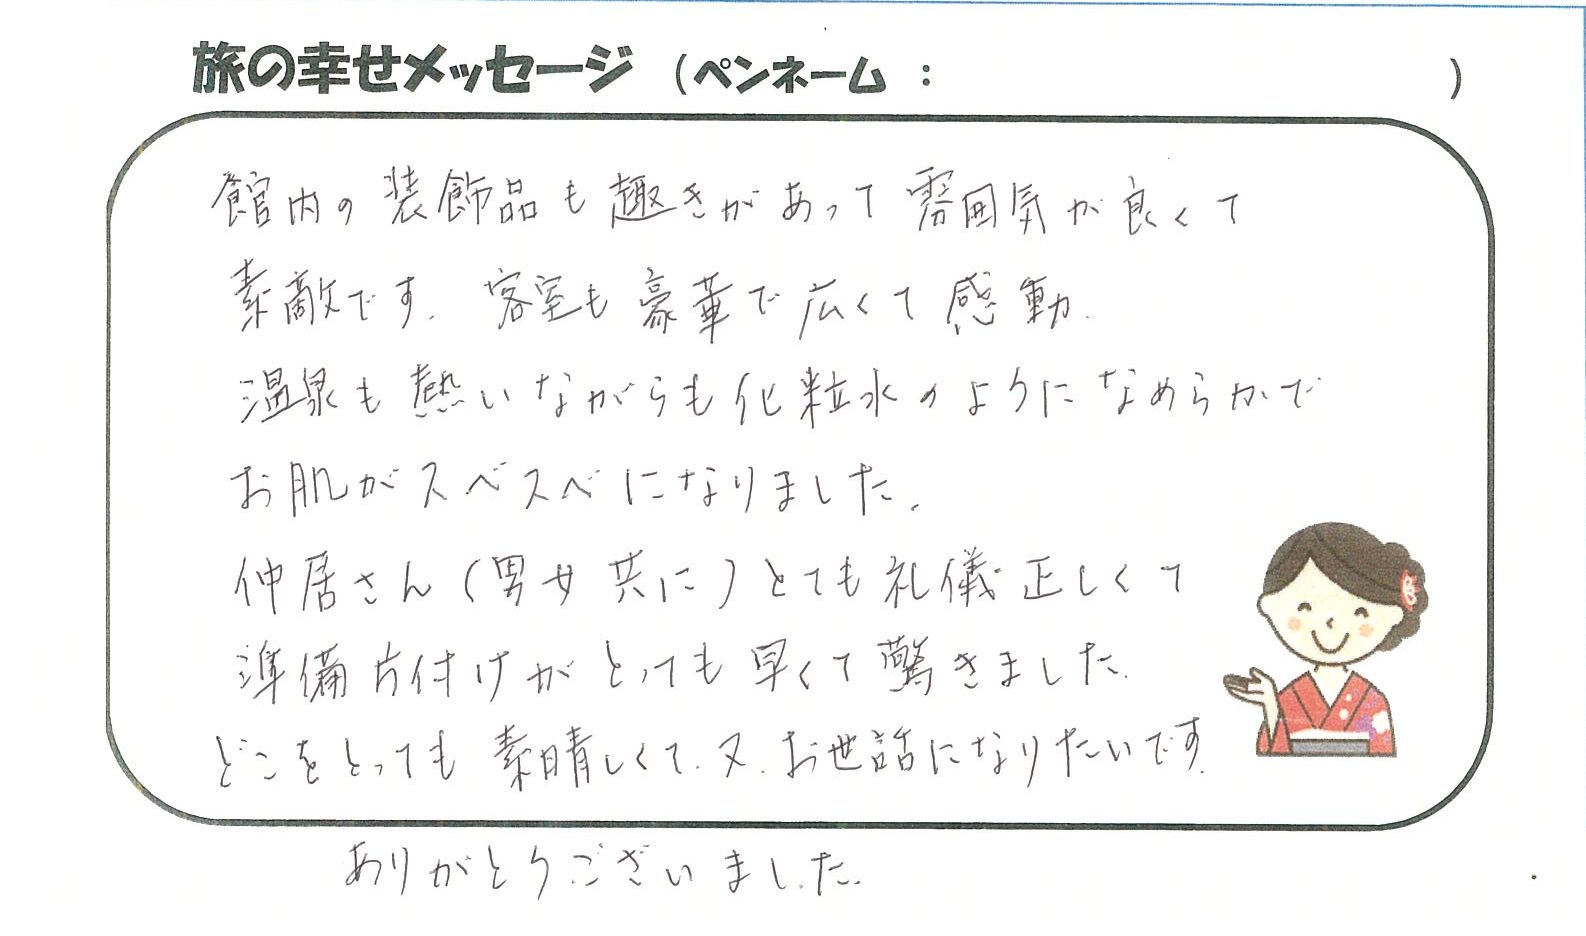 旅の幸せメッセージ （ペンネーム ： ）
館内の装飾品も趣きがあって雰囲気が良くて
素敵です. 客室も豪華で広くて感動.
温泉も熱いながらも化粧水のようになめらかで
お肌がスベスベになりました.
仲居さん(男女共に)とても礼儀正しくて
準備片付けがとっても早くて驚きました.
どこをとっても素晴しくて.又.お世話になりたいです.
ありがとうございました.